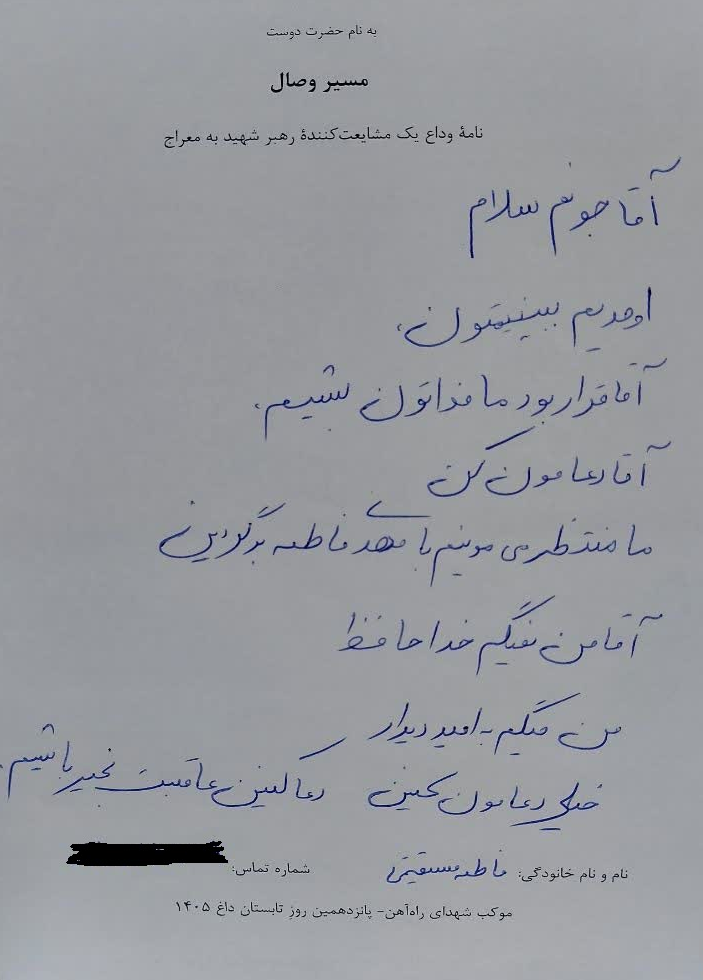 به نام حضرت دوست
مسیر وصال
نامهٔ وداع یک مشایعت‌کنندهٔ رهبر شهید به معراج
آقا جونم سلام
اومدیم ببینیمتون،
آقا قرار بود ما فداتون بشیم.
آقا دعامون کن
ما منتظر می مونیم با مهدی فاطمه برگردین
آقا من نمیگم خداحافظ
من میگم به امید دیدار
خیلی دعامون کنین دعا کنین عاقبت بخیر باشیم.
نام و نام خانودگی: فاطمه مستقیمی شماره تماس:
موکب شهدای راه‌آهن- پانزدهمین روز تابستان داغ ۱۴۰۵